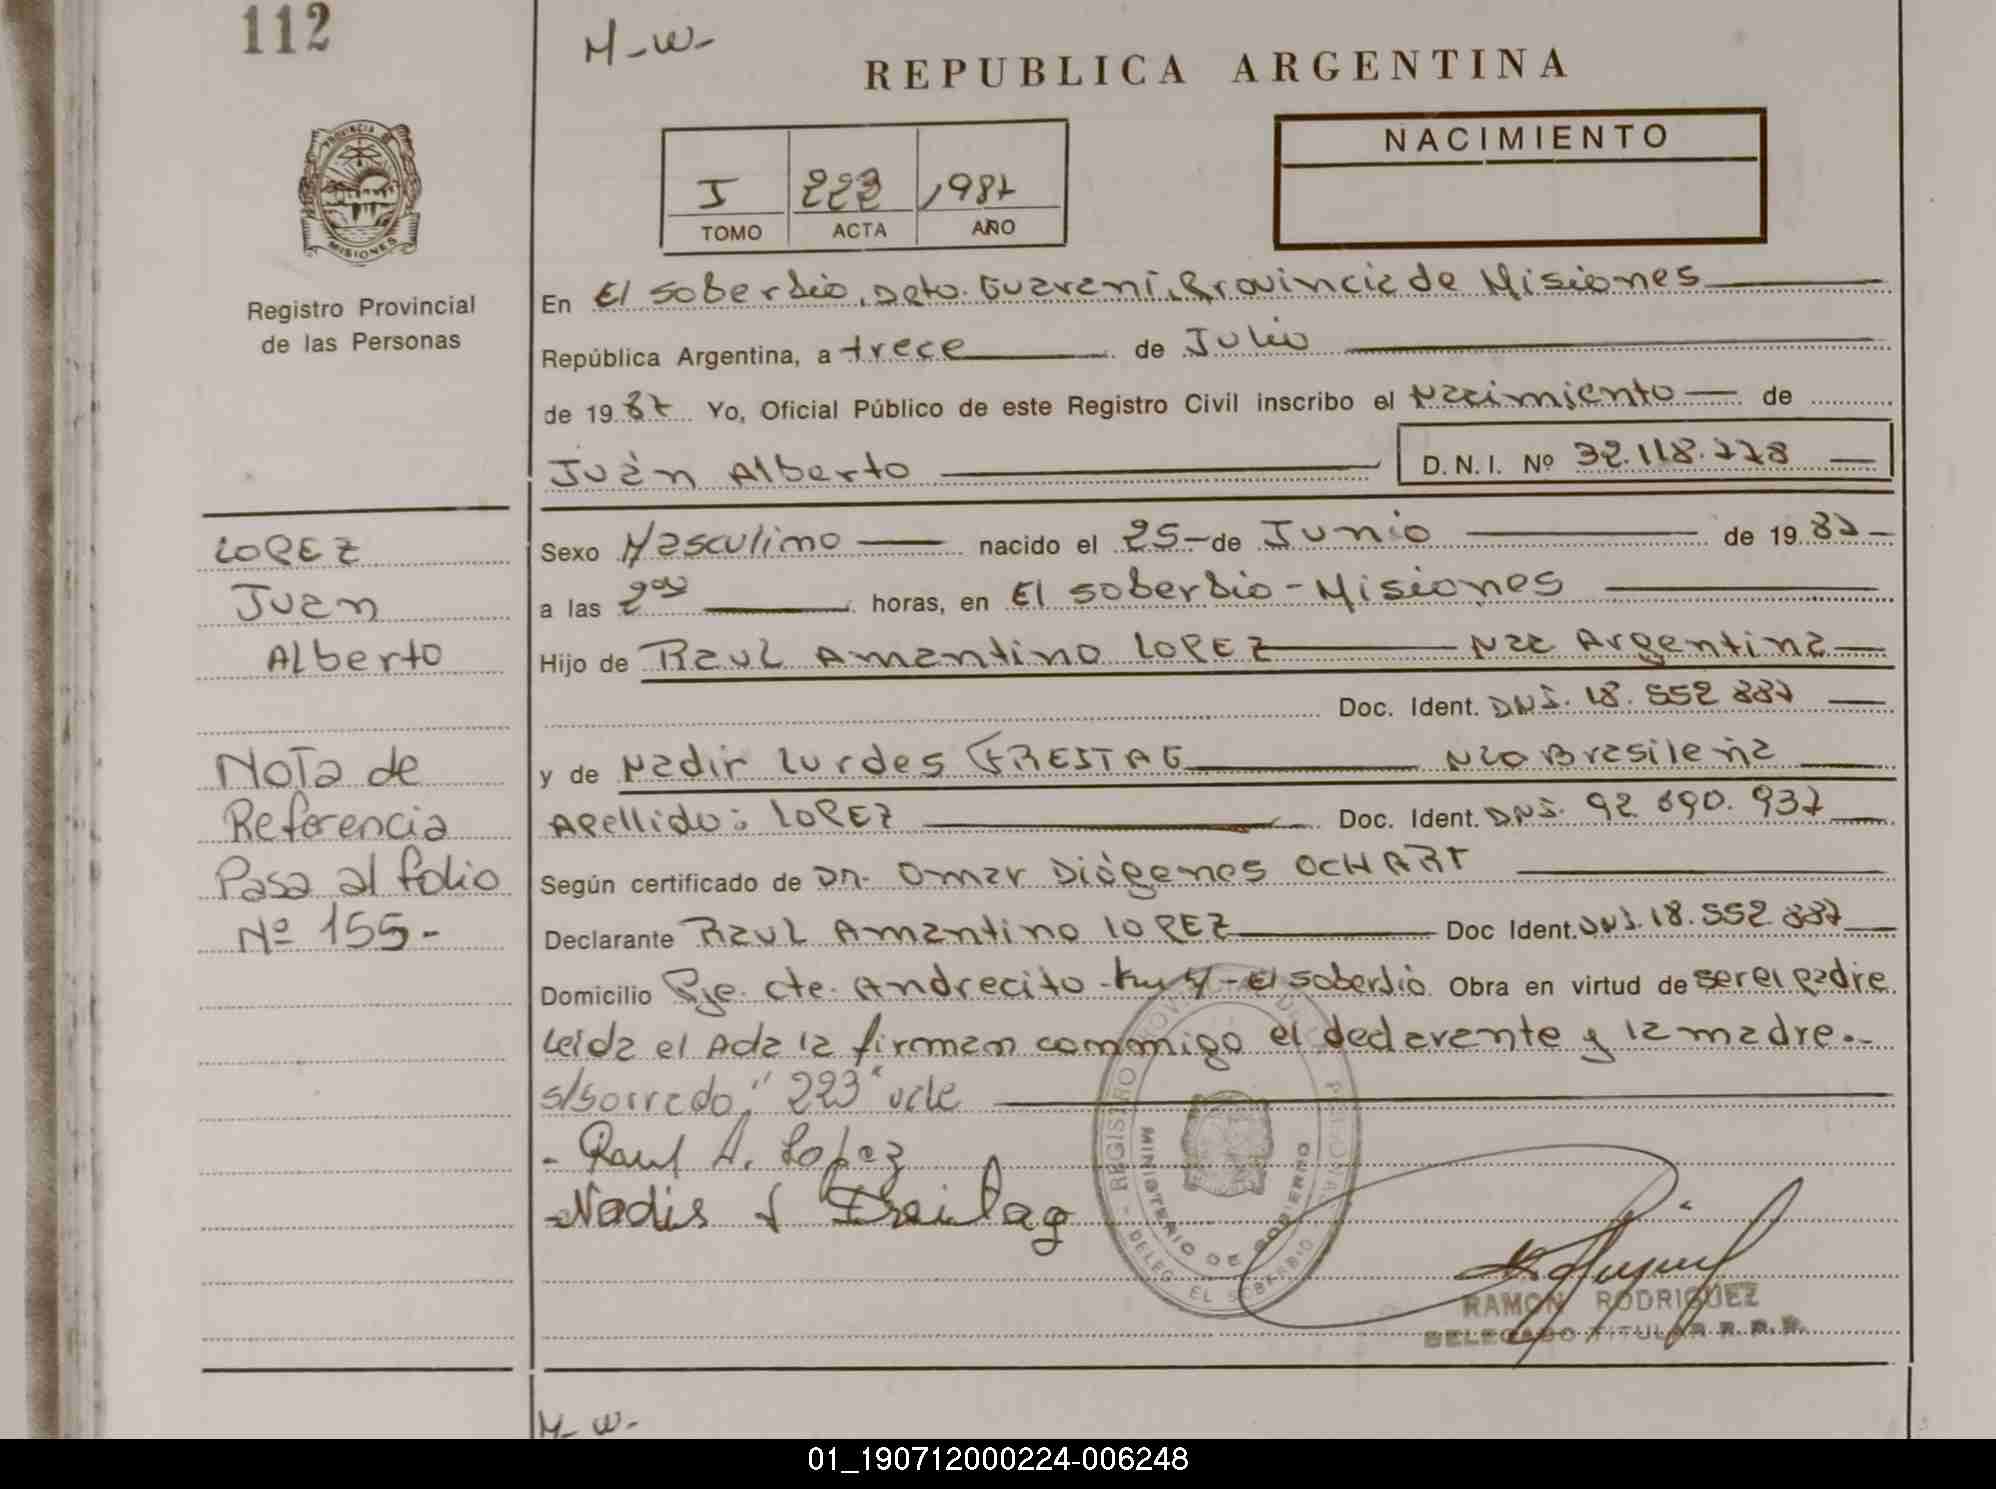 112
M-W-
REPUBLICA ARGENTINA
PROVINCIA DE
MISIONES
Registro Provincial
de las Personas
I 223 1987
TOMO ACTA AÑO
NACIMIENTO
En El Soberbio, Dpto. Guaraní, Provincia de Misiones
República Argentina, a trece de Julio
de 1987 Yo, Oficial Público de este Registro Civil inscribo el Nacimiento de
Juan Alberto D.N.I. Nº 32.118.778
LOPEZ
Juan
Alberto
Nota de
Referencia
Pasa al folio
Nº 155-
Sexo Masculino nacido el 25 de Junio de 1987
a las 2 horas, en El Soberbio - Misiones
Hijo de Raul Amantino LOPEZ Nac Argentina
Doc. Ident. DNI. 18.552.887
y de Nadir Lurdes FREITAG Nac Brasileña
Apellido: LOPEZ Doc. Ident. DNI. 92.690.937
Según certificado de Dr. Omar Diógenes OCHART
Declarante Raul Amantino LOPEZ Doc Ident. DNI. 18.552.887
Domicilio Pje. Cte. Andrecito - Km - El Soberbio Obra en virtud de ser el padre
Leida el Acta la firman conmigo el declarante y la madre.-
s/borrado, "223" vale
- Raul A. Lopez
- Nadir L Freitag
REGISTRO PROVINCIAL DE LAS PERSONAS
MINISTERIO DE GOBIERNO
DELEG. EL SOBERBIO
RAMON RODRIGUEZ
DELEGADO TITULAR R. P. P.
M-W-
01_190712000224-006248